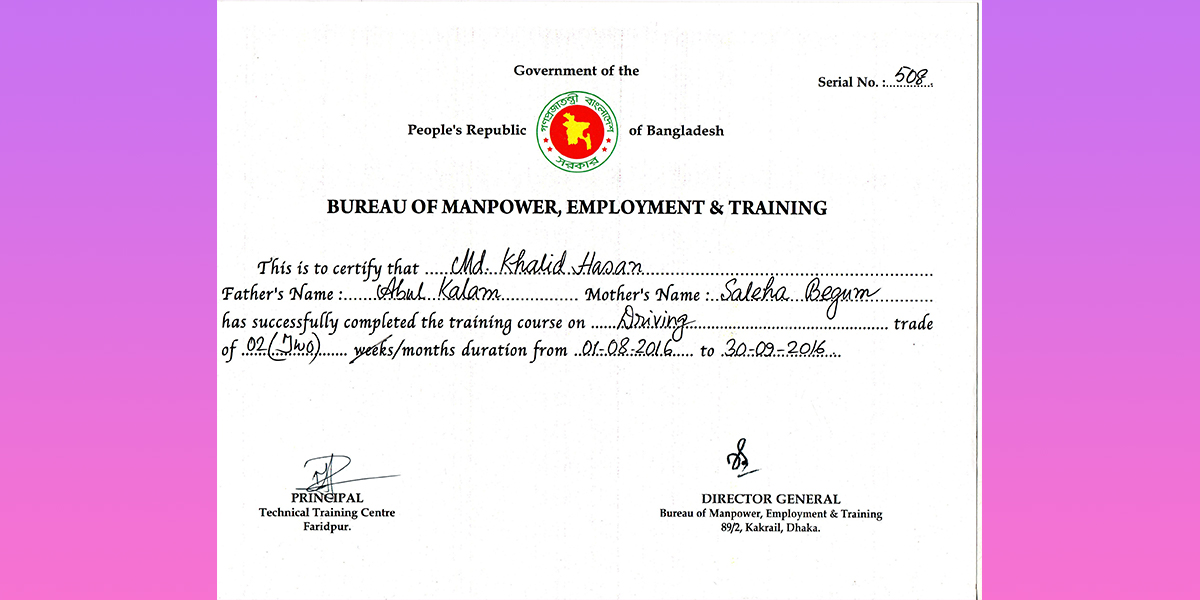 Government of the
Serial No. : 508
People's Republic of Bangladesh
গণপ্রজাতন্ত্রী বাংলাদেশ
সরকার
BUREAU OF MANPOWER, EMPLOYMENT & TRAINING
This is to certify that Md. Khalid Hasan
Father's Name : Abul Kalam Mother's Name : Saleha Begum
has successfully completed the training course on Driving trade
of 02 (Two) weeks/months duration from 01-08-2016 to 30-09-2016
PRINCIPAL
Technical Training Centre
Faridpur.
DIRECTOR GENERAL
Bureau of Manpower, Employment & Training
89/2, Kakrail, Dhaka.